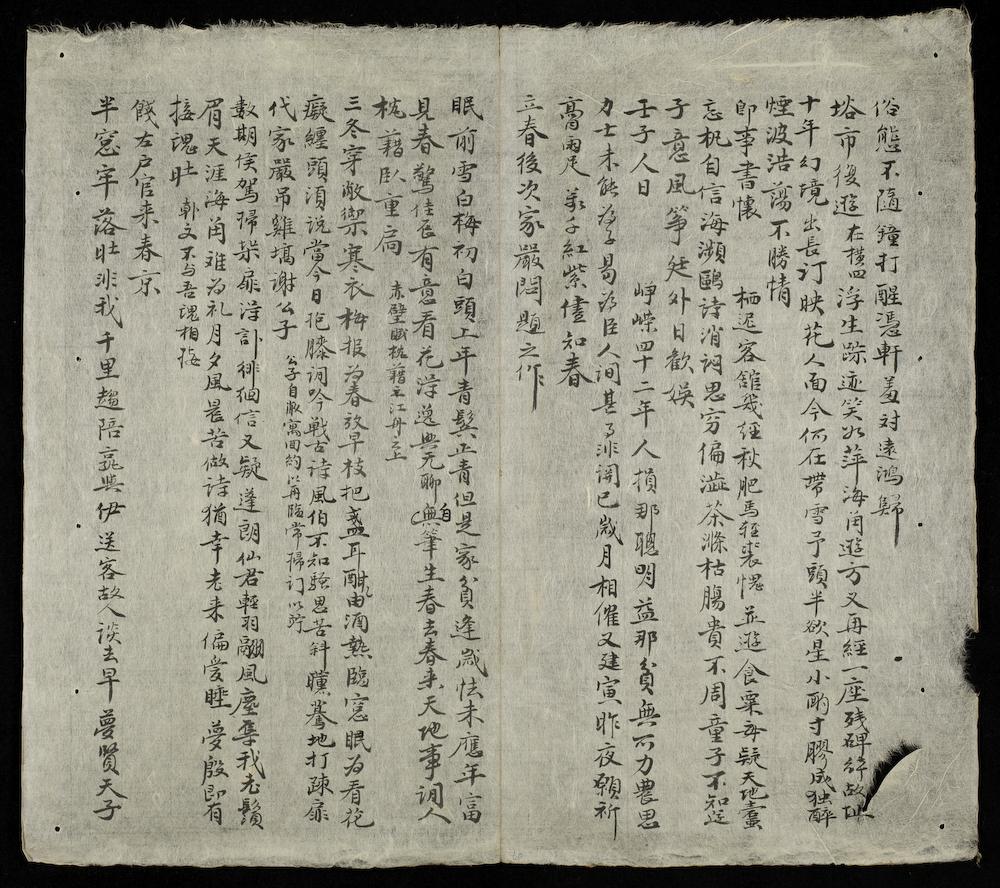 俗態不隨鐘打醒憑軒羞对遠鴻歸
塔市復遊在橫四浮生踪迹笑如萍海角遊方又再經一座残碑辞故址
十年幻境出長汀映花人面今何在帶雪予頭半欲星小酌寸膠成独醉
煙波浩蕩不勝情
即事書懷 栖遲客館幾経秋肥馬軽裘愧並遊食粟每疑天地蠹
忘机自信海瀕鷗詩消詞思穷偏澁茶滌枯腸貴不周童子不知近
子意風筝終外日歡娛
壬子人日 崢嶸四十二年人損那聰明益那貧無可力農思
力士未能為子曷為臣人间甚了非開已歲月相催又建寅昨夜願祈
膏雨足 萬千紅紫儘知春
立春後次家嚴問題之作
眼前雪白梅初白頭上年青鬓正青但是家貧逢歲怯未應年富
見春驚佳辰有意看花浮逸興无聊自興筆生春去春来天地事详人
枕藉臥重扃 赤壁賦枕藉于江舟之上
三冬穿敝禦寒衣梅报为春放早枝把盞耳酣由酒熟臨窓眠为看花
癡纏頭须说當今日抱膝詞吟戦古詩風伯不知騷思苦斜驪驀地打疎扉
代家嚴吊雞塢謝公子 公子自敝寓回約以再臨常掃门以貯
数期侯駕掃柴扉浮訃徘徊信又疑蓬朗仙君輕羽翮風塵辱我老鬚
眉天涯海角难为礼月夕風晨苦做詩猶幸老来偏愛睡夢殷即有
接魂时 郭文不与吾魂相接
餞左户官来春京
半窓牢落壯非我千里趨陪亮與伊送客故人谈去早夢賢天子